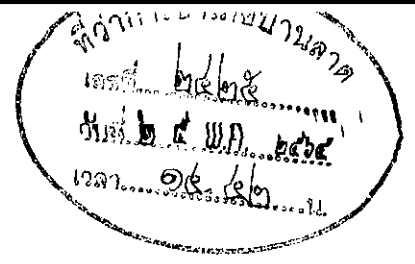 ที่ว่าการอำเภอบ้านลาด
เลขที่ ๒๔๒๕
วันที่ ๒ ๔ พ.ค. ๒๕๖๕
เวลา ๑๕.๔๒ น.